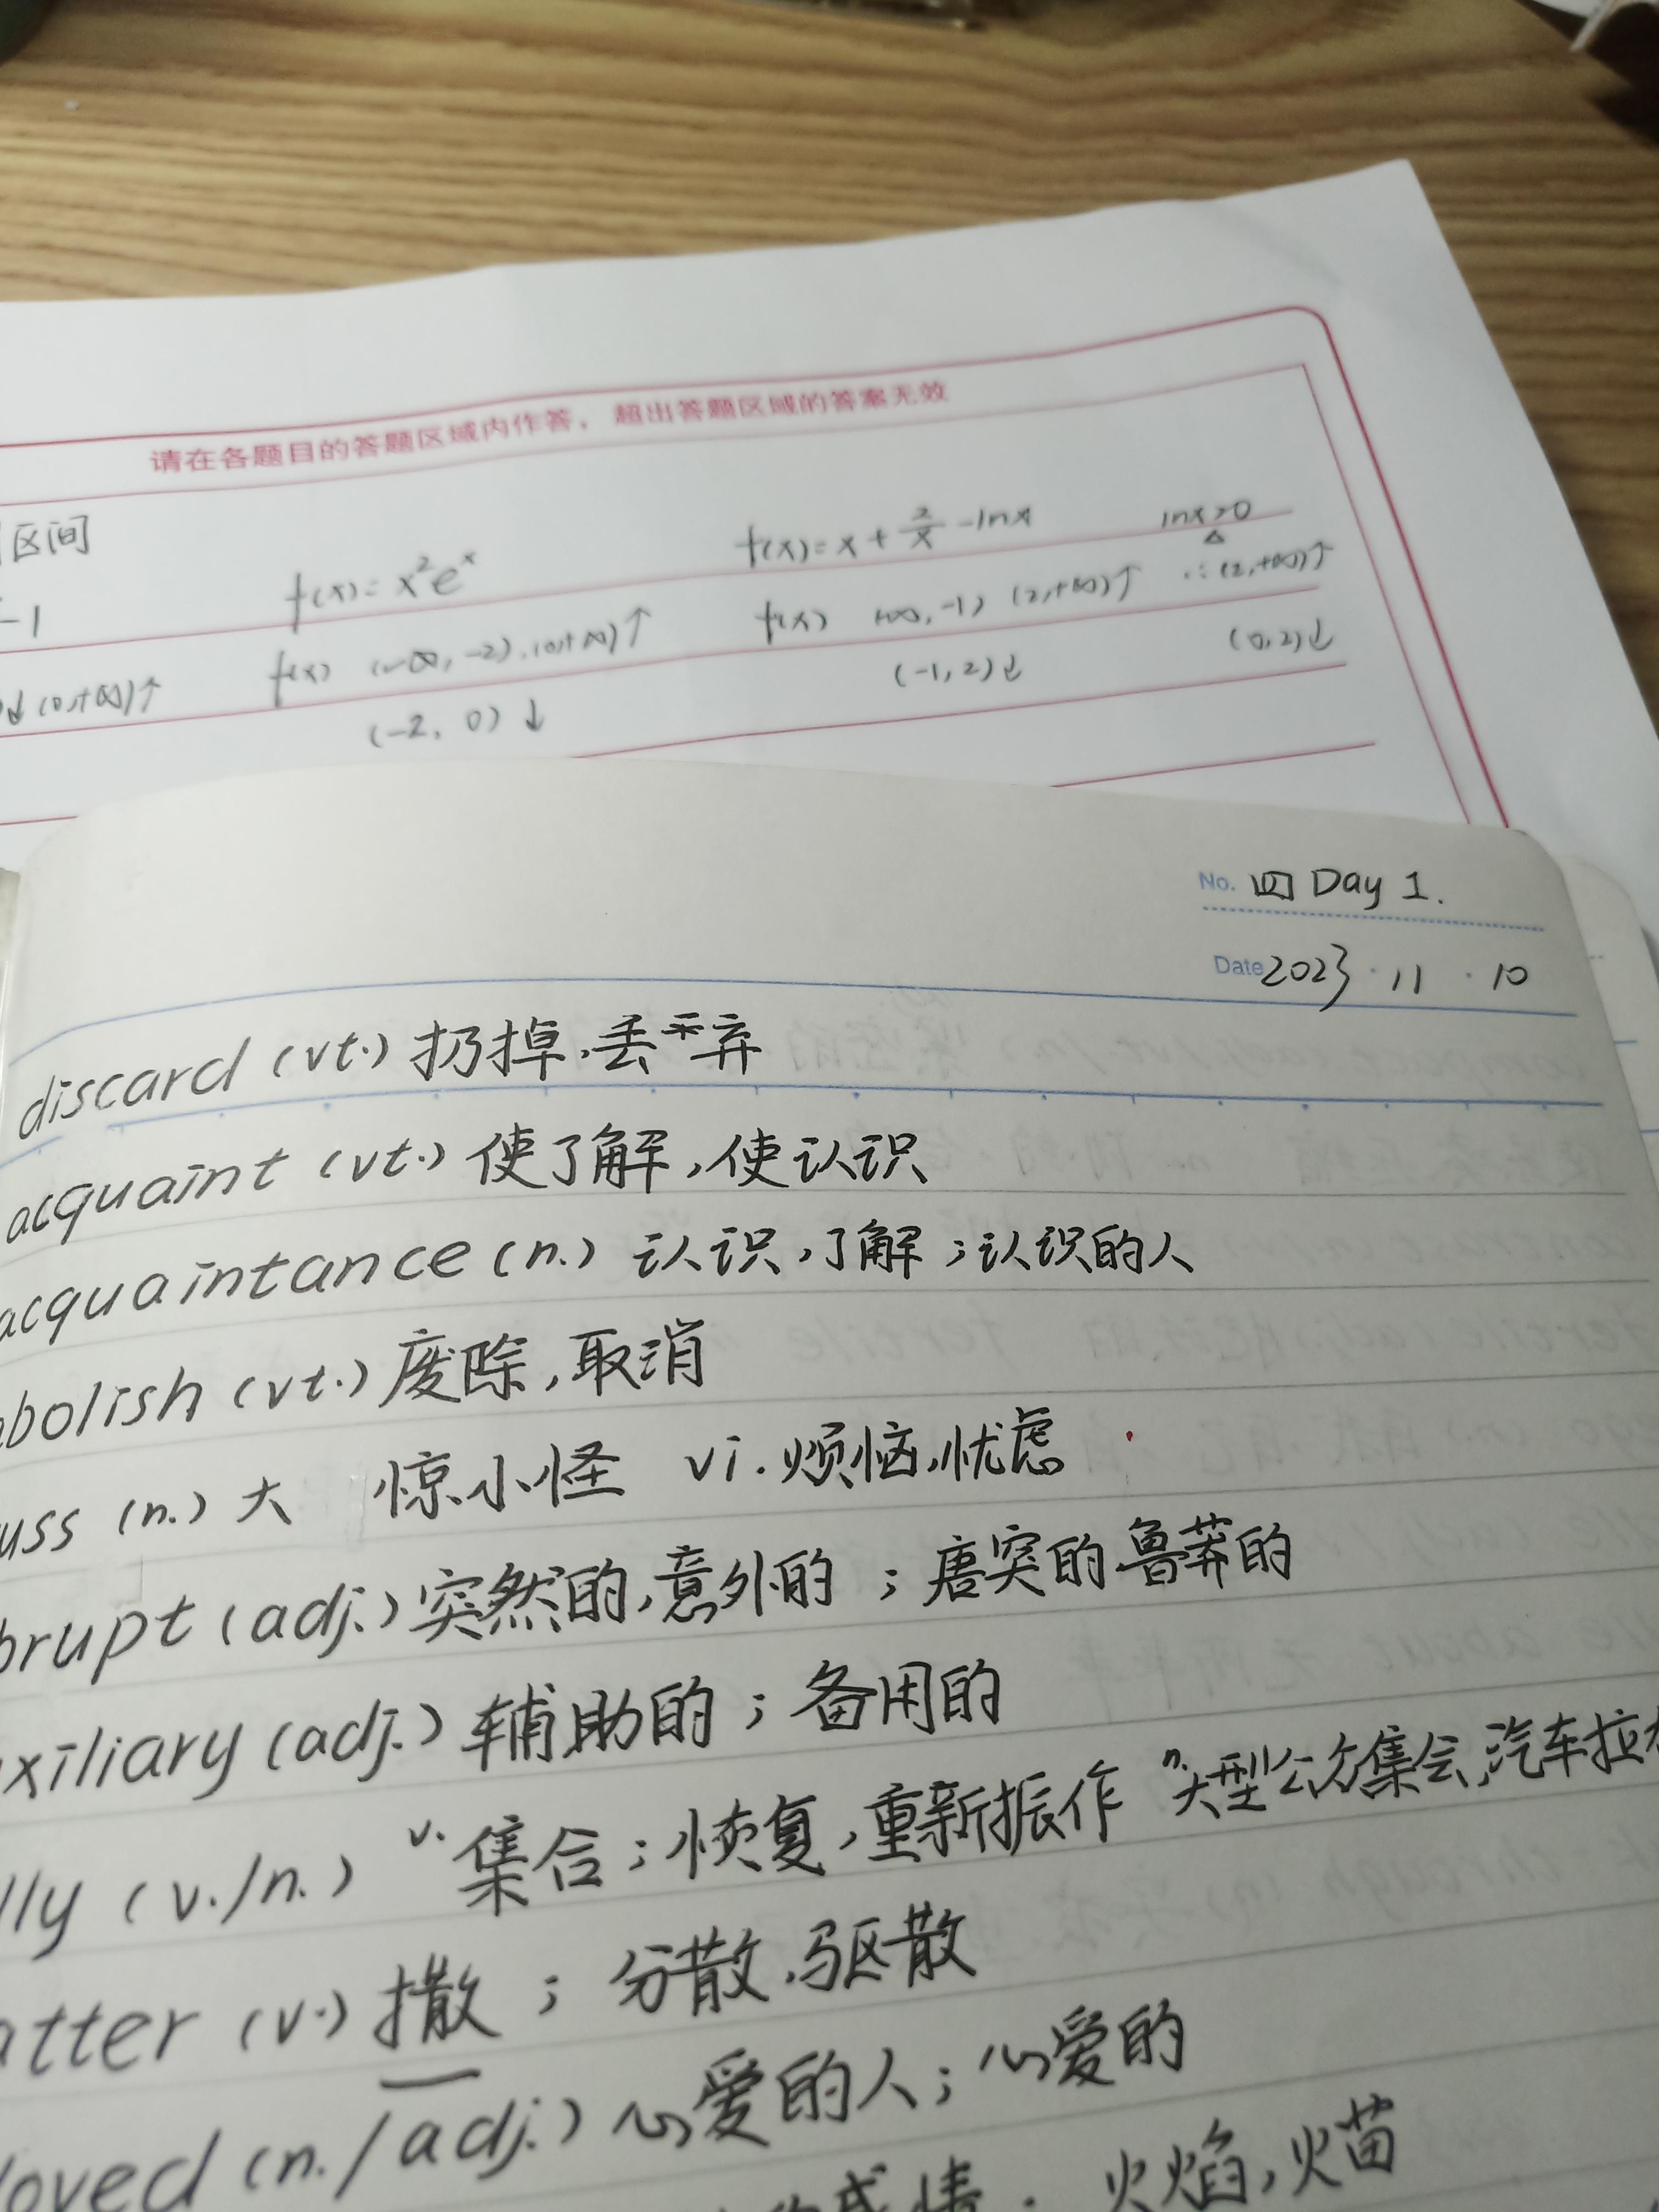 请在各题目的答题区域内作答，超出答题区域的答案无效
区间
-1
↓(0,+∞)↑
f(x)=x²eˣ
f(x) (-∞,-2).(0,+∞)↑
(-2, 0)↓
f(x)=x+2/x-lnx
f(x) (-∞,-1) (2,+∞)↑
(-1,2)↓
lnx>0
∴(2,+∞)↑
(0,2)↓
No. 四 Day 1.
Date 2023·11·10
discard (vt.) 扔掉,丢弃
acquaint (vt.) 使了解,使认识
acquaintance (n.) 认识,了解;认识的人
bolish (vt.) 废除,取消
uss (n.) 大 惊小怪 vi.烦恼,忧虑
brupt (adj.) 突然的,意外的;唐突的,鲁莽的
xiliary (adj.) 辅助的;备用的
lly (v./n.) v.集合;恢复,重新振作 n.大型公众集会,汽车拉
atter (v.) 撒;分散,驱散
loved (n./adj.) 心爱的人;心爱的
感情. 火焰,火苗